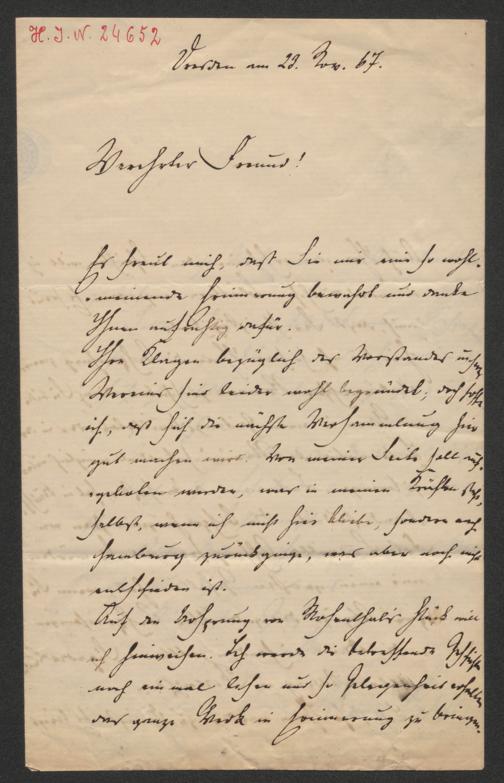 H. I. N. 24652
Dresden am 23. Nov. 67.
Verehrter Freund!
Es freut mich, daß Sie mir eine so wohl-
meinende Erinnerung bewahrt und danke
Ihnen aufrichtig dafür.
Ihre Klagen bezüglich des Vorstandes unsers
Vereins sind leider wohl begründet; doch hoffe
ich, daß sich die nächste Versammlung hier
gut machen wird. Von meiner Seite soll auf-
geboten werden, was in meinen Kräften steht,
selbst, wenn ich nicht hier bliebe, sondern nach
Hamburg zurückginge, was aber noch nicht
entschieden ist.
Auf den Ursprung von Rosenthal's Stück will
ich hinweisen. Ich werde die betreffende
noch einmal lesen und so Gelegenheit erhalten
das ganze Werk in Erinnerung zu bringen.